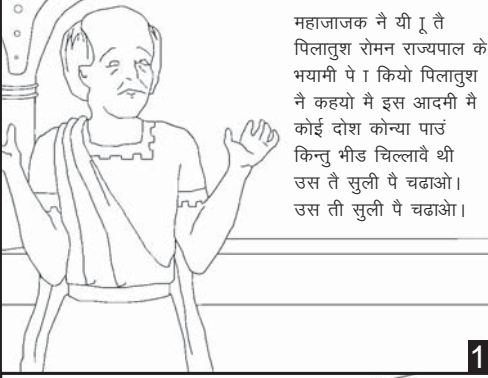 महाजाजक नै यी ू तै
पिलातुश रोमन राज्यपाल के
भयामी पे ा कियो पिलातुश
नै कहयो मै इस आदमी मै
कोई दोश कोन्या पाउं
किन्तु भीड चिल्लावै थी
उस तै सुली पै चढाओ।
उस ती सुली पै चढाओ।
1